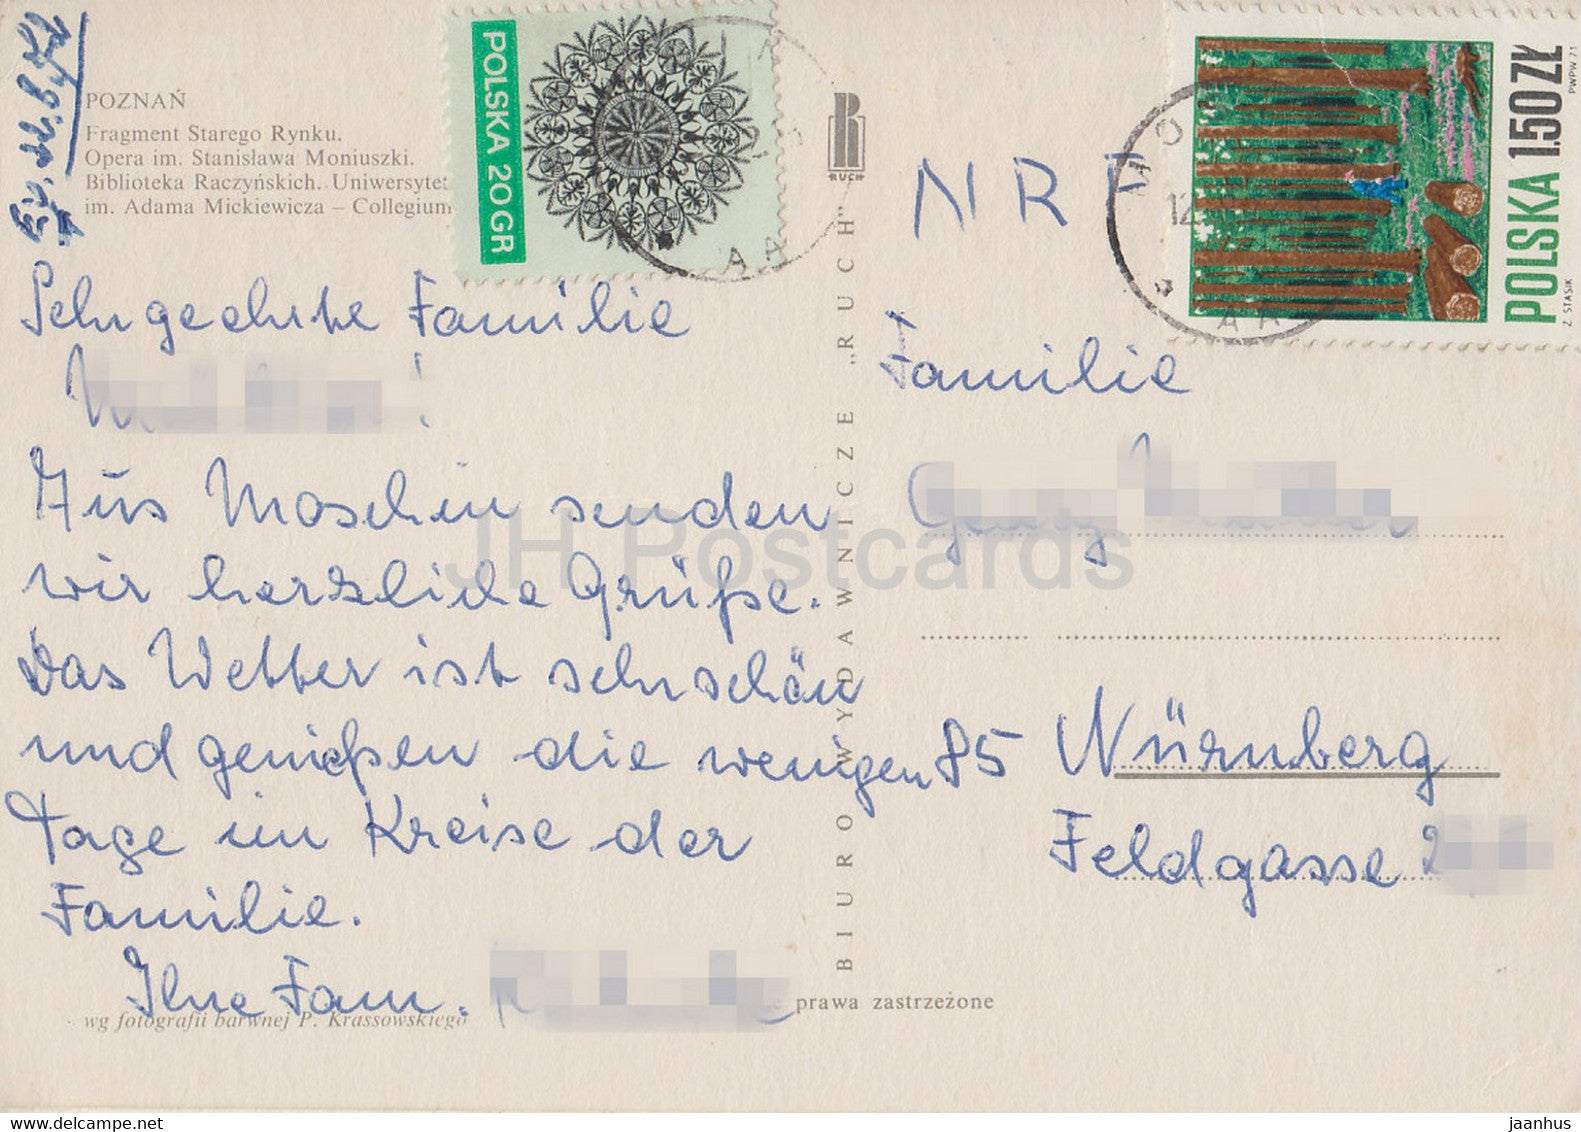 POZNAŃ
Fragment Starego Rynku.
Opera im. Stanisława Moniuszki.
Biblioteka Raczyńskich. Uniwersytet
im. Adama Mickiewicza – Collegium
POLSKA 20 GR
RUCH
NRF
POLSKA 1.50 ZŁ
PWPW 71
Z. STASIK
Sehr geehrte Familie
Aus Moschin senden
wir herzliche Grüße.
Das Wetter ist sehr schön
und genießen die wenigen
Tage im Kreise der
Familie.
Ihre Fam.
wg fotografii barwnej P. Krassowskiego
prawa zastrzeżone
BIURO WYDAWNICZE „RUCH"
Familie
Georg
85 Nürnberg
Feldgasse 2
JH Postcards
www.delcampe.net
jaanhus